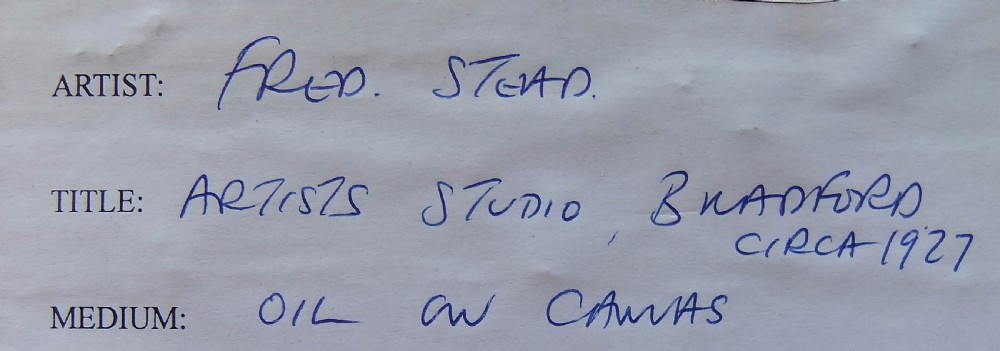 ARTIST: FRED. STEAD.
TITLE: ARTISTS STUDIO, BRADFORD
CIRCA 1927
MEDIUM: OIL ON CANVAS